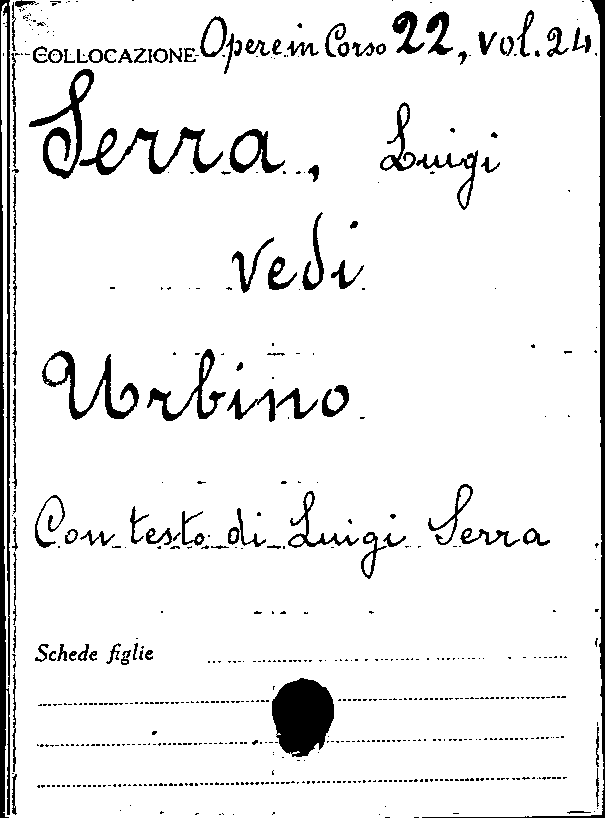 COLLOCAZIONE Opere in Corso 22, vol. 24
Serra, Luigi
vedi
Urbino
Con testo di Luigi Serra
Schede figlie